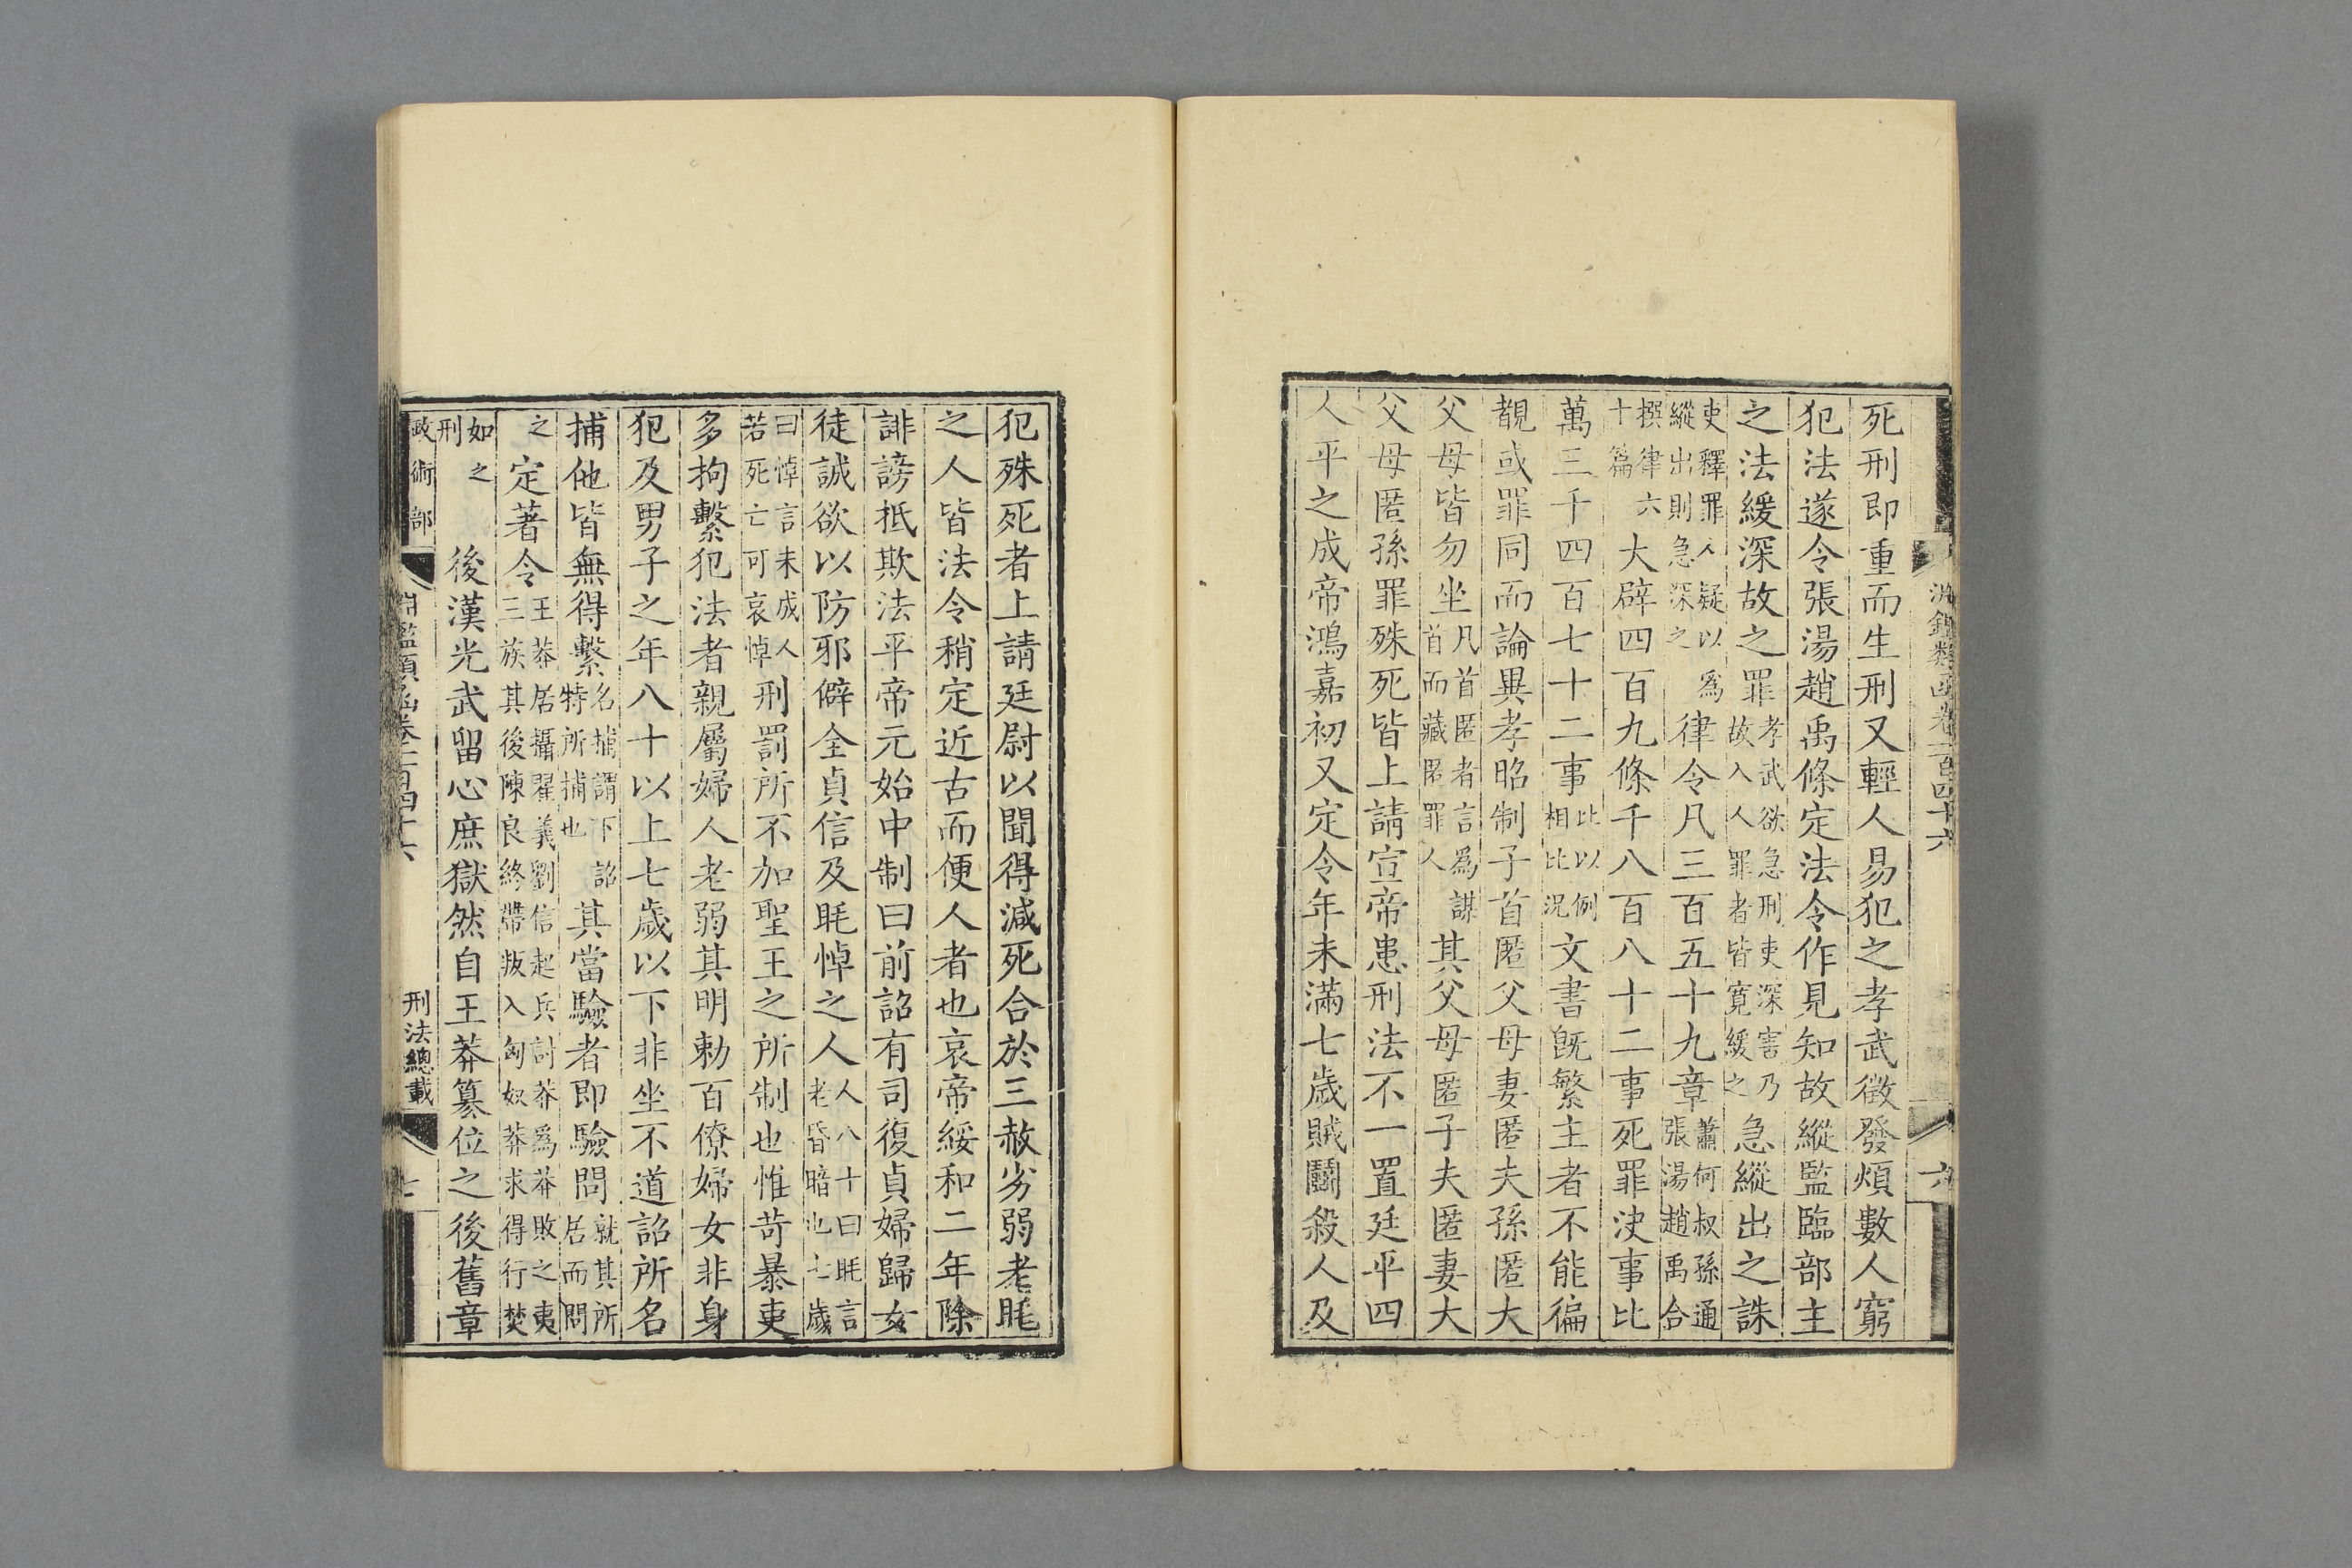 淵鑑類函卷一百四十六
六
死刑即重而生刑又輕人易犯之孝武徵發煩數人窮
犯法遂令張湯趙禹條定法令作見知故縱監臨部主
之法緩深故之罪孝武欲急刑吏深害乃故入人罪者皆寬緩之急縱出之誅
吏釋罪人疑以為縱出則急深之律令凡三百五十九章蕭何叔孫通張湯趙禹合
撰律六十篇大辟四百九條千八百八十二事死罪決事比
萬三千四百七十二事比以例相比況文書既繁主者不能徧
覩或罪同而論異孝昭制子首匿父母妻匿夫孫匿大
父母皆勿坐凡首匿者言為謀首而藏匿罪人其父母匿子夫匿妻大
父母匿孫罪殊死皆上請宣帝患刑法不一置廷平四
人平之成帝鴻嘉初又定令年未滿七歲賊鬭殺人及
犯殊死者上請廷尉以聞得減死合於三赦劣弱老眊
之人皆法令稍定近古而便人者也哀帝綏和二年除
誹謗抵欺法平帝元始中制曰前詔有司復貞婦歸女
徒誠欲以防邪僻全貞信及眊悼之人人八十曰眊言老昏暗也七歲
曰悼言未成人若死亡可哀悼刑罰所不加聖王之所制也惟苛暴吏
多拘繫犯法者親屬婦人老弱其明勅百僚婦女非身
犯及男子之年八十以上七歲以下非坐不道詔所名
捕他皆無得繫名捕謂下詔特所捕也其當驗者即驗問就其所居而問
之定著令王莽居攝翟義劉信起兵討莽為莽敗之夷三族其後陳良終帶叛入匈奴莽求得行焚
如之刑後漢光武留心庶獄然自王莽篡位之後舊章
政術部
淵鑑類函卷一百四十六
刑法總載
七